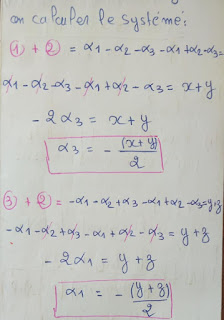 on calculer le système:
① + ② = α1 - α2 - α3 - α1 + α2 - α3 =
α1 - α2 - α3 - α1 + α2 - α3 = x + y
- 2α3 = x + y
α3 = - (x+y)/2
③ + ② = -α1 - α2 + α3 - α1 + α2 - α3 = y + z
-α1 - α2 + α3 - α1 + α2 - α3 = y + z
- 2α1 = y + z
α1 = - (y + z)/2